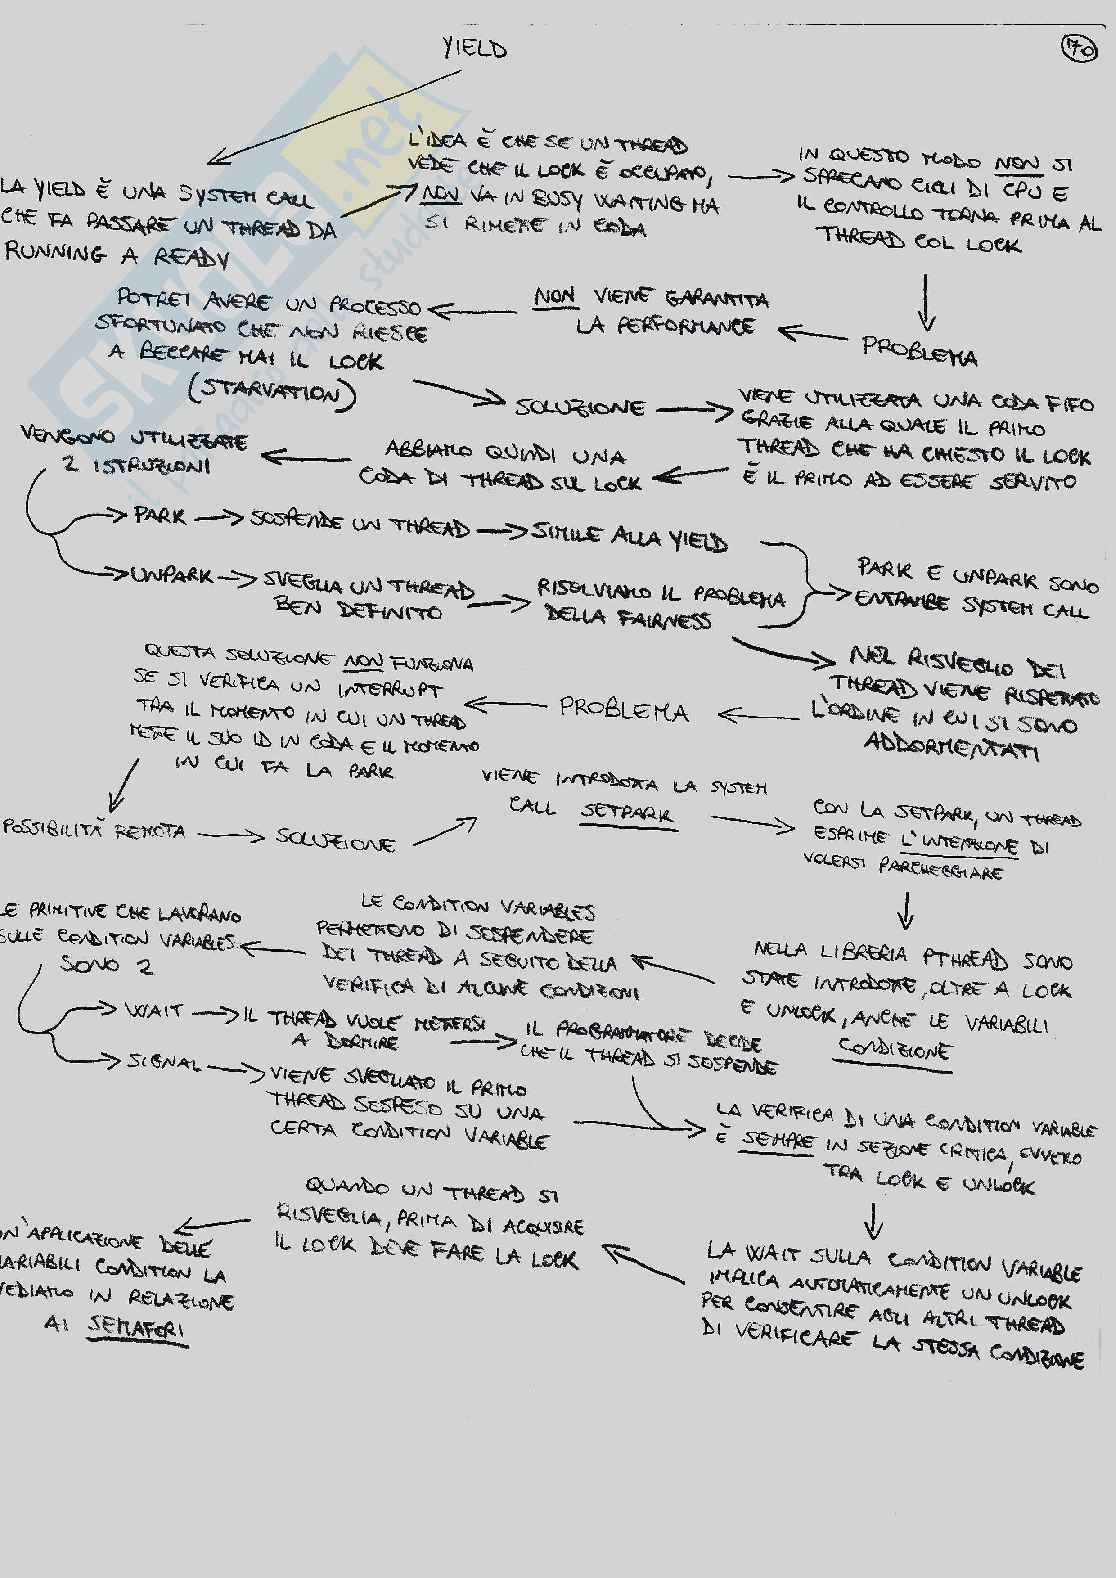 YIELD
70
LA YIELD È UNA SYSTEM CALL
CHE FA PASSARE UN THREAD DA
RUNNING A READY
L'IDEA È CHE SE UN THREAD
VEDE CHE IL LOCK È OCCUPATO,
NON VA IN BUSY WAITING MA
SI RIMETTE IN CODA
IN QUESTO MODO NON SI
SPRECANO CICLI DI CPU E
IL CONTROLLO TORNA PRIMA AL
THREAD COL LOCK
PROBLEMA
NON VIENE GARANTITA
LA PERFORMANCE
POTREI AVERE UN PROCESSO
SFORTUNATO CHE NON RIESCE
A BECCARE MAI IL LOCK
(STARVATION)
SOLUZIONE
VIENE UTILIZZATA UNA CODA FIFO
GRAZIE ALLA QUALE IL PRIMO
THREAD CHE HA CHIESTO IL LOCK
È IL PRIMO AD ESSERE SERVITO
ABBIAMO QUINDI UNA
CODA DI THREAD SUL LOCK
VENGONO UTILIZZATE
2 ISTRUZIONI
PARK
SOSPENDE UN THREAD
SIMILE ALLA YIELD
UNPARK
SVEGLIA UN THREAD
BEN DEFINITO
RISOLVIAMO IL PROBLEMA
DELLA FAIRNESS
PARK E UNPARK SONO
ENTRAMBE SYSTEM CALL
NEL RISVEGLIO DEI
THREAD VIENE RISPETTATO
L'ORDINE IN CUI SI SONO
ADDORMENTATI
PROBLEMA
QUESTA SOLUZIONE NON FUNZIONA
SE SI VERIFICA UN INTERRUPT
TRA IL MOMENTO IN CUI UN THREAD
METTE IL SUO ID IN CODA E IL MOMENTO
IN CUI FA LA PARK
POSSIBILITÀ REMOTA
SOLUZIONE
VIENE INTRODOTTA LA SYSTEM
CALL SETPARK
CON LA SETPARK, UN THREAD
ESPRIME L'INTENZIONE DI
VOLERSI PARCHEGGIARE
NELLA LIBRERIA PTHREAD SONO
STATE INTRODOTTE, OLTRE A LOCK
E UNLOCK, ANCHE LE VARIABILI
CONDIZIONE
LE CONDITION VARIABLES
PERMETTONO DI SOSPENDERE
DEI THREAD A SEGUITO DELLA
VERIFICA DI ALCUNE CONDIZIONI
LE PRIMITIVE CHE LAVORANO
SULLE CONDITION VARIABLES
SONO 2
WAIT
IL THREAD VUOLE METTERSI
A DORMIRE
IL PROGRAMMATORE DECIDE
CHE IL THREAD SI SOSPENDE
SIGNAL
VIENE SVEGLIATO IL PRIMO
THREAD SOSPESO SU UNA
CERTA CONDITION VARIABLE
LA VERIFICA DI UNA CONDITION VARIABLE
È SEMPRE IN SEZIONE CRITICA, OVVERO
TRA LOCK E UNLOCK
LA WAIT SULLA CONDITION VARIABLE
IMPLICA AUTOMATICAMENTE UN UNLOCK
PER CONSENTIRE AGLI ALTRI THREAD
DI VERIFICARE LA STESSA CONDIZIONE
QUANDO UN THREAD SI
RISVEGLIA, PRIMA DI ACQUISIRE
IL LOCK DEVE FARE LA LOCK
UN'APPLICAZIONE DELLE
VARIABILI CONDITION LA
VEDIAMO IN RELAZIONE
AI SEMAFORI
SKUOLA.net